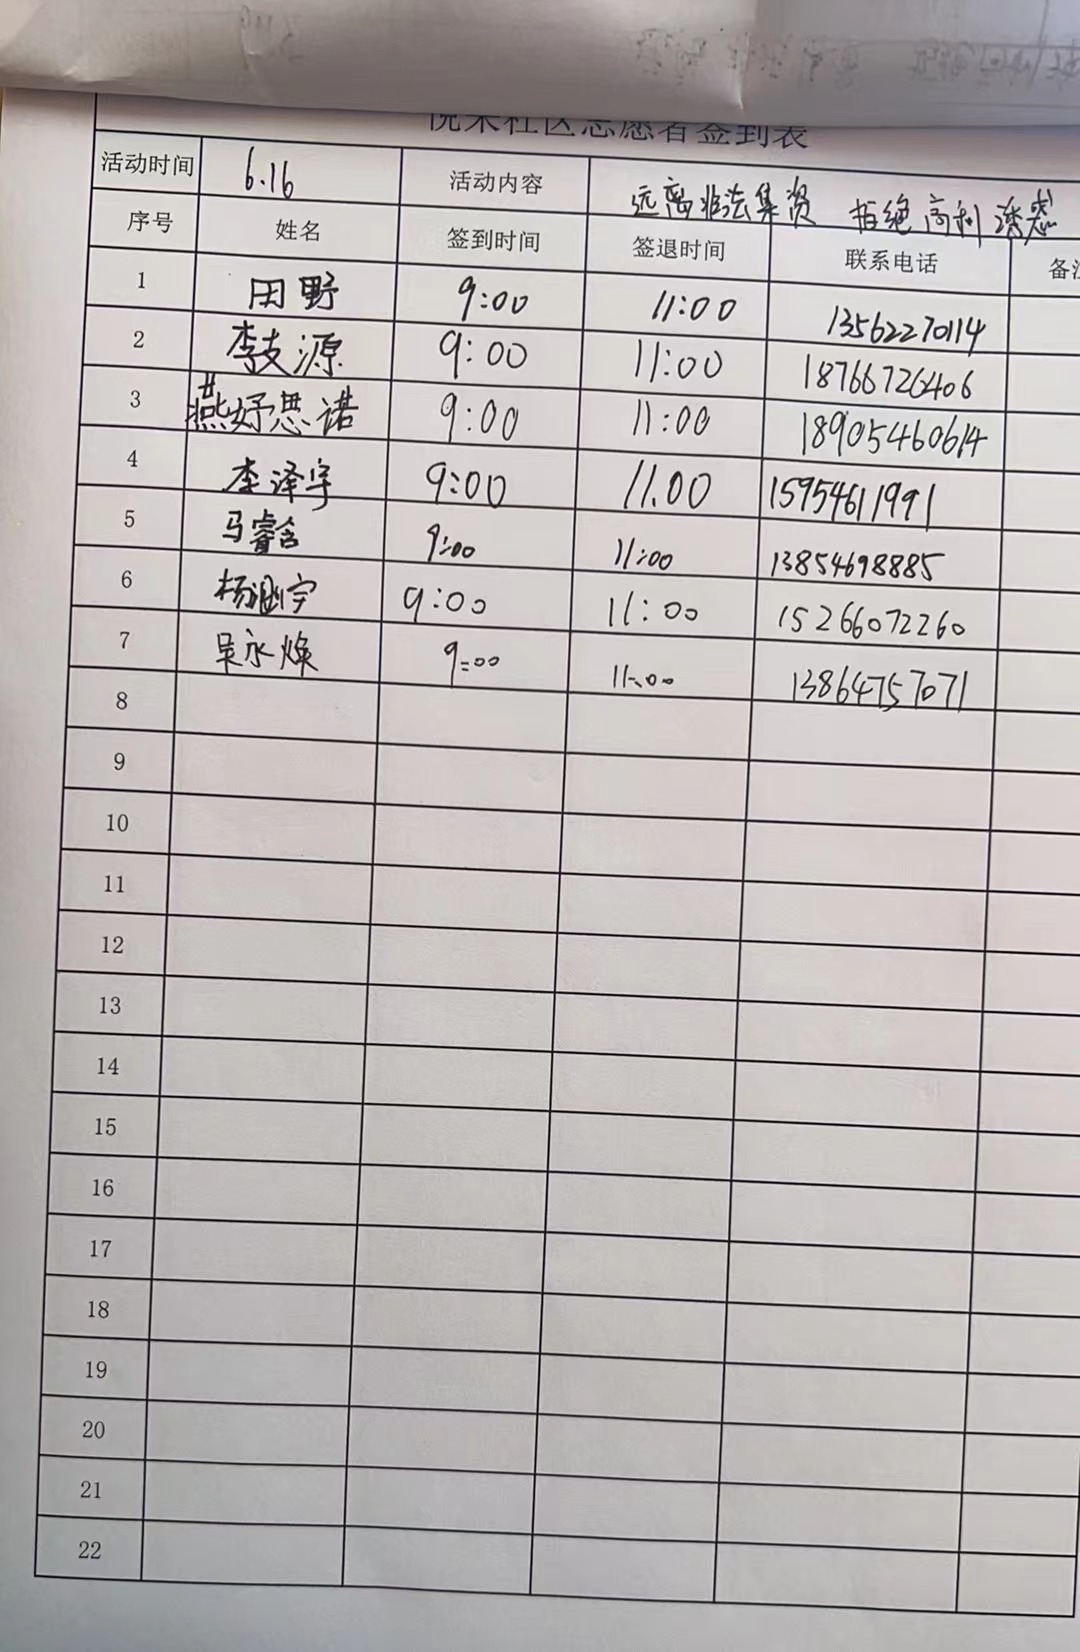 悦来社区志愿者签到表
活动时间 6.16 活动内容 远离非法集资 拒绝高利诱惑
序号 姓名 签到时间 签退时间 联系电话 备注
1 田野 9:00 11:00 13562270114
2 李支源 9:00 11:00 18766726406
3 燕妤思诺 9:00 11:00 18905460614
4 李泽宇 9:00 11.00 15954611991
5 马睿含 9:00 11:00 13854698885
6 杨涵宇 9:00 11:00 15266072260
7 吴永焕 9:00 11:00 13864757071
8
9
10
11
12
13
14
15
16
17
18
19
20
21
22